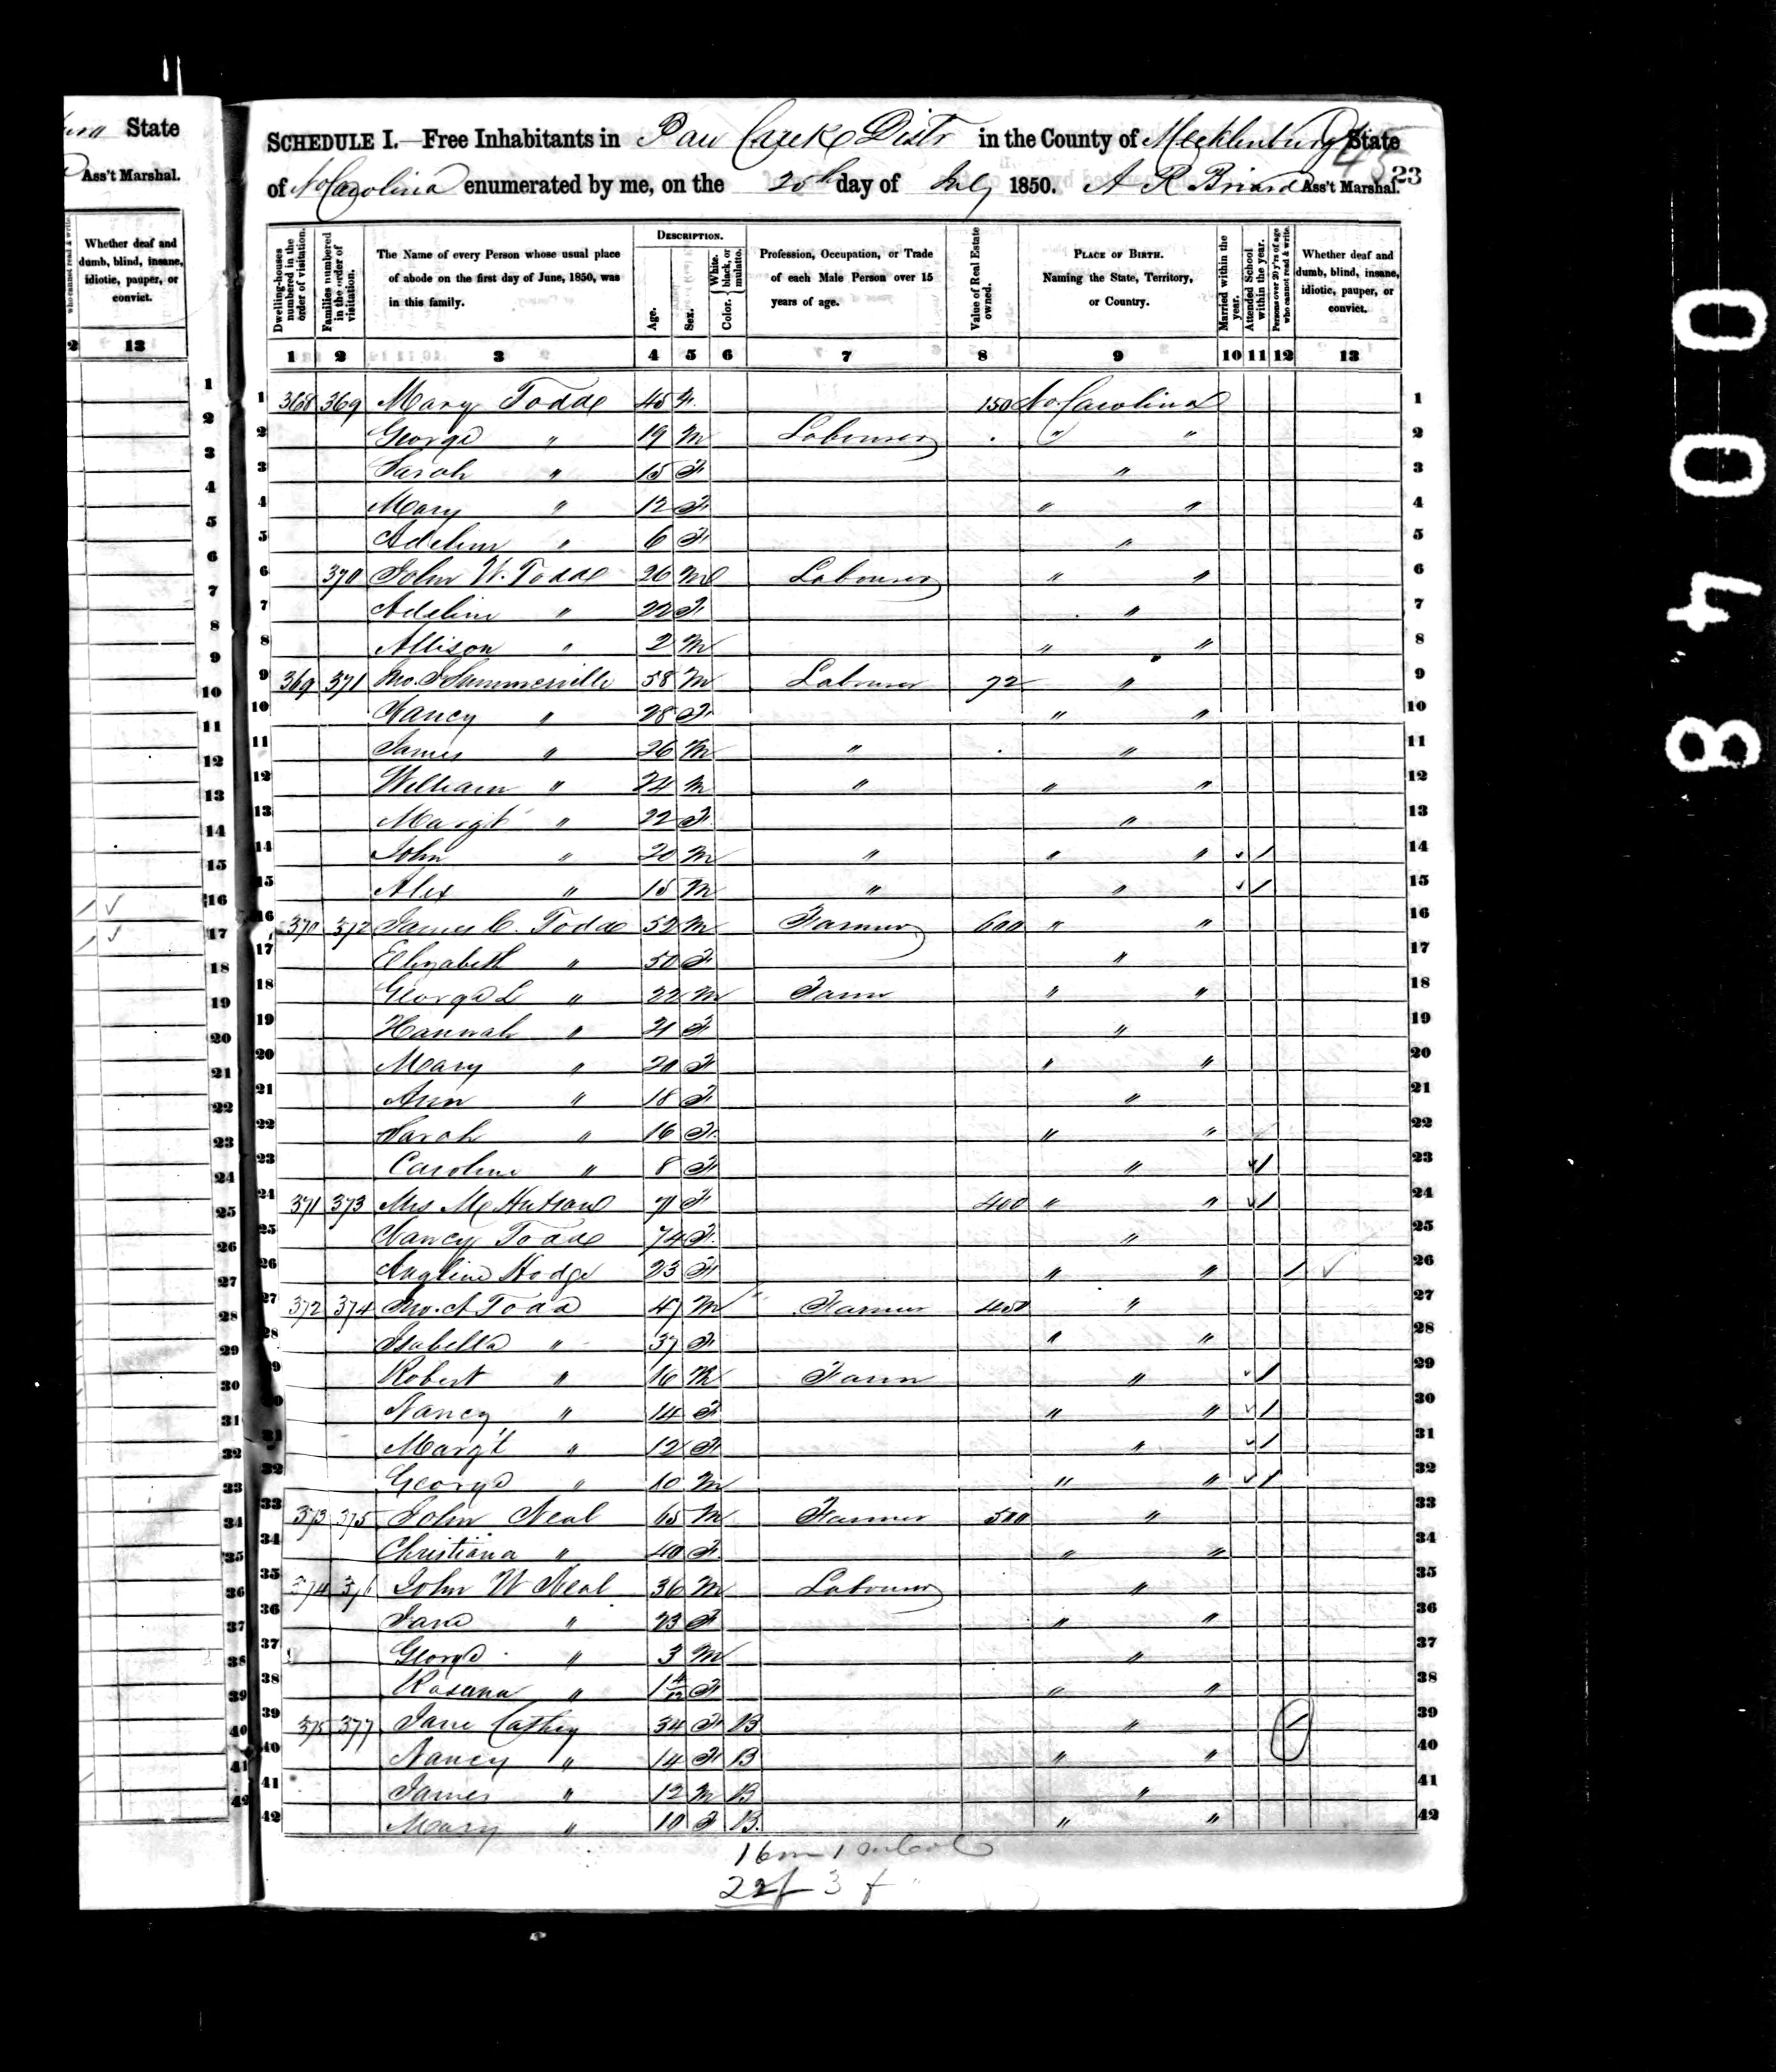 State
Ass't Marshal.
who cannot read & write.
Whether deaf and dumb, blind, insane, idiotic, pauper, or convict.
2 13
SCHEDULE I.—Free Inhabitants in Paw Creek Distr in the County of Mecklenburg State
of No Carolina enumerated by me, on the 20th day of July 1850. A R Ass't Marshal.
45 23
Dwelling-houses numbered in the order of visitation.
Families numbered in the order of visitation.
The Name of every Person whose usual place of abode on the first day of June, 1850, was in this family.
DESCRIPTION.
Age.
Sex.
Color. White, black, or mulatto.
Profession, Occupation, or Trade of each Male Person over 15 years of age.
Value of Real Estate owned.
PLACE OF BIRTH. Naming the State, Territory, or Country.
Married within the year.
Attended School within the year.
Persons over 20 y'rs of age who cannot read & write.
Whether deaf and dumb, blind, insane, idiotic, pauper, or convict.
1 2 3 4 5 6 7 8 9 10 11 12 13
1 368 369 Mary Todd 45 F. 150 No Carolina 1
2 George " 19 M Labourer " " 2
3 Sarah " 15 F " 3
4 Mary " 12 F " " 4
5 Adeline " 6 F " 5
6 370 John W. Todd 26 M Labourer " " 6
7 Adeline " 22 F " 7
8 Allison " 2 M " " 8
9 369 371 Jno. Summerville 58 M Labourer 72 " 9
10 Nancy " 28 F " " 10
11 James " 26 M " " 11
12 William " 24 M " " " 12
13 Margt " 22 F " 13
14 John " 20 M " " " / 14
15 Alex " 15 M " " / 15
16 370 372 James C. Todd 52 M Farmer 600 " " 16
17 Elizabeth " 50 F " 17
18 George L " 22 M Farm " " 18
19 Hannah " 21 F " 19
20 Mary " 20 F " " 20
21 Ann " 18 F " 21
22 Sarah " 16 F " " 22
23 Caroline " 8 F " / 23
24 371 373 Mrs M Hutson 71 F 400 " " / 24
25 Nancy Todd 74 F " 25
26 Angline Hodge 23 F " " / ✓ 26
27 372 374 Jno. A Todd 47 M Farmer 450 " 27
28 Isabella " 37 F " " 28
29 Robert " 16 M Farm " / 29
30 Nancy " 14 F " " / 30
31 Marg't " 12 F " / 31
32 George " 10 M " " / 32
33 373 375 John Neal 65 M Farmer 500 " 33
34 Christiana " 40 F " " 34
35 374 376 John W Neal 36 M Labourer " 35
36 Jane " 23 F " " 36
37 George " 3 M " 37
38 Rosanna " 1 4/12 F " " 38
39 375 377 Jane Cathey 34 F B " / 39
40 Nancy " 14 F B " " 40
41 James " 12 M B " 41
42 Mary " 10 F B. " " 42
16 m 1
22 f 3 f
0 0 4 8